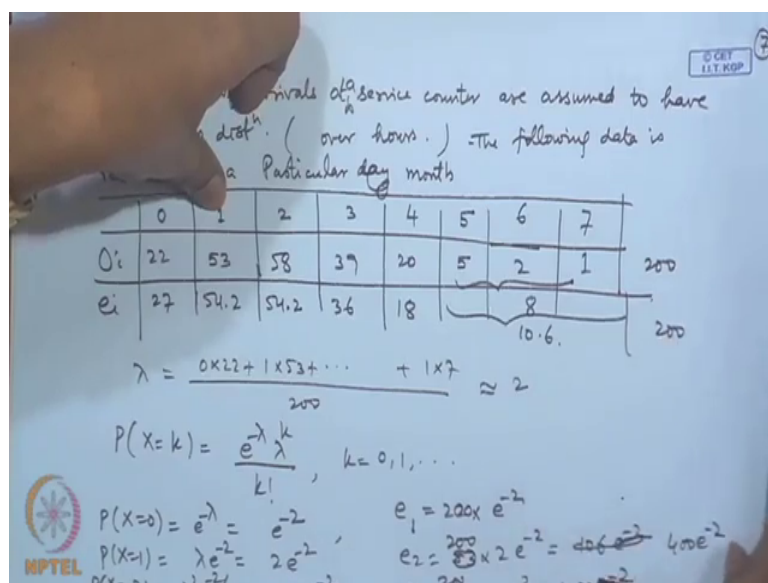 7
© CET
I.I.T. KGP
rrivals at a service counter are assumed to have
distⁿ. ( over hours. ) The following data is
a Particular day month
0 1 2 3 4 5 6 7
Oi 22 53 58 39 20 5 2 1 200
ei 27 54.2 54.2 36 18 8
10.6. 200
λ = (0×22 + 1×53 + ··· + 1×7) / 200 ≈ 2
P(X=k) = e^{-λ} λ^k / k! , k = 0, 1, ···
P(X=0) = e^{-λ} = e^{-2} , e₁ = 200 × e^{-2}
P(X=1) = λe^{-2} = 2e^{-2} e₂ = 200 × 2 e^{-2} = 400e^{-2}
NPTEL